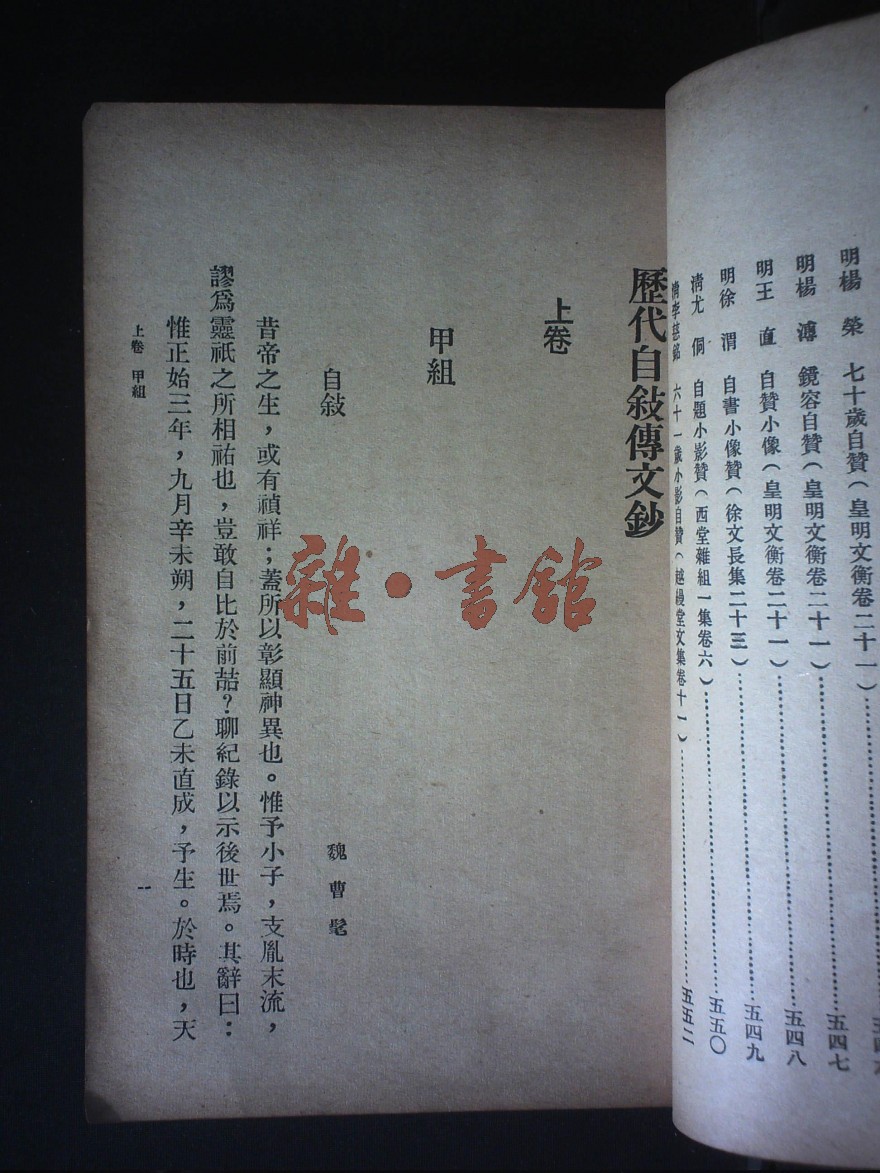 明楊榮　七十歲自贊（皇明文衡卷二十一）
明楊溥　鏡容自贊（皇明文衡卷二十一）五四七
明王直　自贊小像（皇明文衡卷二十一）五四八
明徐渭　自書小像贊（徐文長集二十三）五四九
清尤侗　自題小影贊（西堂雜組一集卷六）五五〇
清李慈銘　六十一歲小影自贊（越縵堂文集卷十一）五五二
歷代自敍傳文鈔
上卷
甲組
自敍　魏曹髦
昔帝之生，或有禎祥；蓋所以彰顯神異也。惟予小子，支胤末流，
謬爲靈祇之所相祐也，豈敢自比於前喆？聊紀錄以示後世焉。其辭曰：
惟正始三年，九月辛未朔，二十五日乙未直成，予生。於時也，天
上卷　甲組　一
雜·書館